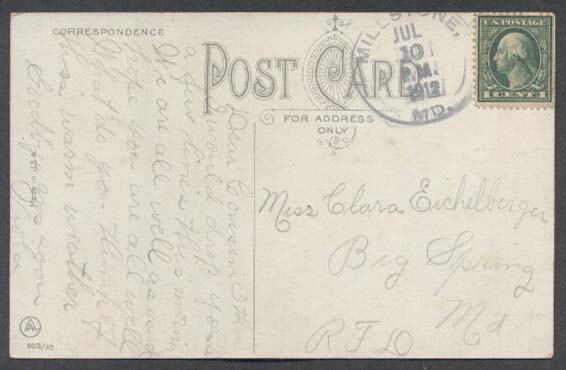 CORRESPONDENCE
POST CARD
FOR ADDRESS
ONLY
MILLSTONE,
JUL
10
P.M.
1912
MD.
U.S. POSTAGE
1 CENT 1
Dear Cousin I thot
I would drop you
a few lines this morning
We are all well as usual
hope you are all well
What do you think of
this warm weather
Goodbye ans soon
Miss Clara Eichelberger
Big Spring
Md
RFD
503/32